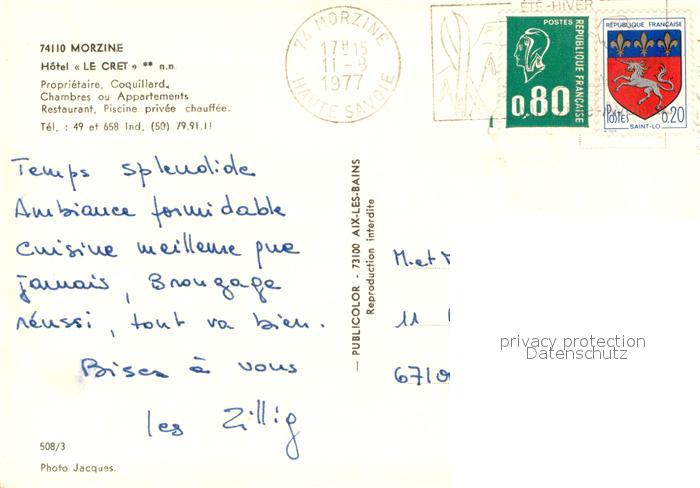 74110 MORZINE
Hôtel « LE CRET » ** n.n.
Propriétaire, Coquillard.
Chambres ou Appartements
Restaurant, Piscine privée chauffée.
Tél. : 49 et 658 Ind. (50) 79.91.11
74 MORZINE
17H15
11-8
1977
HAUTE SAVOIE
ÉTÉ-HIVER
POSTES
RÉPUBLIQUE FRANÇAISE
0,80
RÉPUBLIQUE FRANÇAISE
Postes 0,20
SAINT-LO
Temps splendide
Ambiance formidable
cuisine meilleure que
jamais, Bronzage
réussi, tout va bien.
Bises à vous
les Zillig
PUBLICOLOR - 73100 AIX-LES-BAINS
Reproduction interdite
M. et
11
privacy protection
Datenschutz
508/3
Photo Jacques.